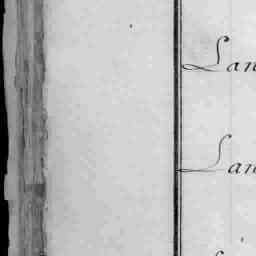 Lan
Lan